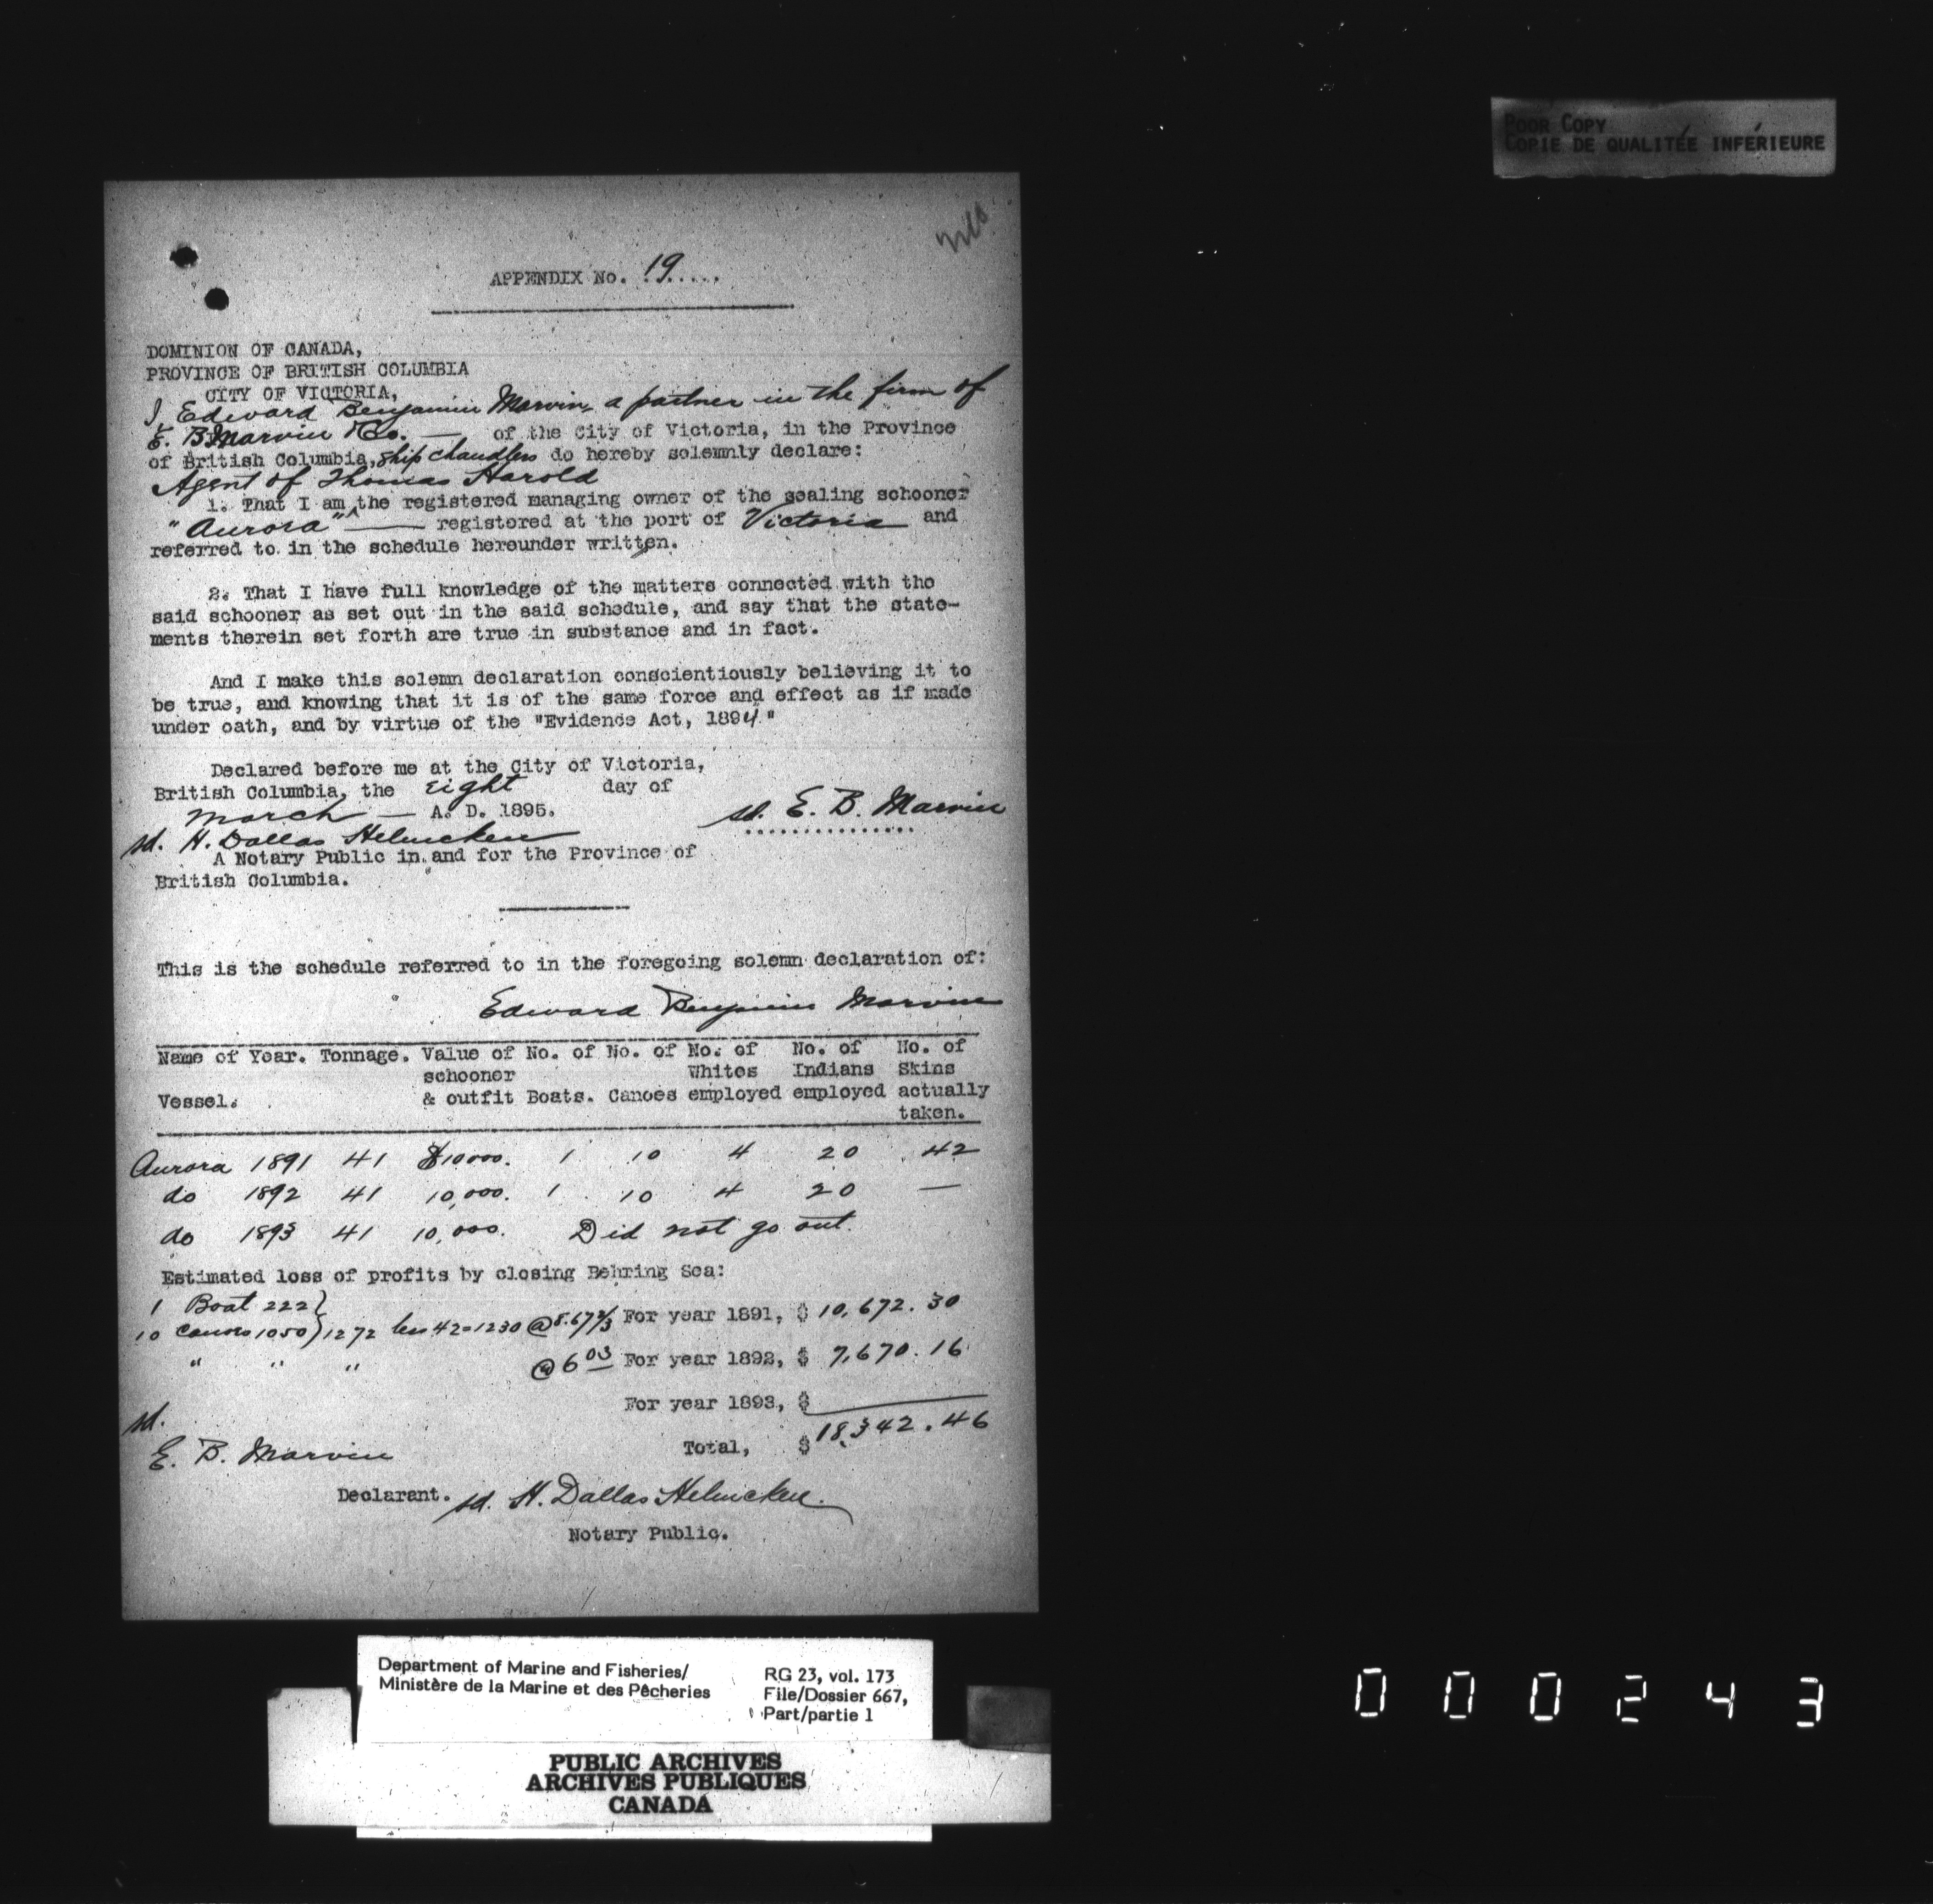 POOR COPY
COPIE DE QUALITÉE INFÉRIEURE
APPENDIX No. 19.....
DOMINION OF CANADA,
PROVINCE OF BRITISH COLUMBIA
CITY OF VICTORIA,
I, Edward Benjamin Marvin, a partner in the firm of
E. B. Marvin & Co. — of the City of Victoria, in the Province
of British Columbia, ship chandlers do hereby solemnly declare:
Agent of Thomas Harold
1. That I am ^ the registered managing owner of the sealing schooner
"Aurora" — registered at the port of Victoria and
referred to in the schedule hereunder written.
2. That I have full knowledge of the matters connected with the
said schooner as set out in the said schedule, and say that the state-
ments therein set forth are true in substance and in fact.
And I make this solemn declaration conscientiously believing it to
be true, and knowing that it is of the same force and effect as if made
under oath, and by virtue of the "Evidence Act, 1894."
Declared before me at the City of Victoria,
British Columbia, the eight day of
March — A. D. 1895.
sd. E. B. Marvin
sd. H. Dallas Helmcken
A Notary Public in and for the Province of
British Columbia.
This is the schedule referred to in the foregoing solemn declaration of:
Edward Benjamin Marvin
Name of Year. Tonnage. Value of No. of No. of No. of No. of No. of
schooner Whites Indians Skins
Vessel. & outfit Boats. Canoes employed employed actually
taken.
Aurora 1891 41 $10000. 1 10 4 20 42
do 1892 41 10,000. 1 10 4 20 —
do 1893 41 10,000. Did not go out.
Estimated loss of profits by closing Behring Sea:
1 Boat 222}
10 Canoes 1050} 1272 less 42=1230 @ 8.67 2/3 For year 1891, $ 10,672.30
" " " @ 6 03 For year 1892, $ 7,670.16
For year 1893, $ —
sd.
Total, $ 18,342.46
E. B. Marvin
Declarant. sd. H. Dallas Helmcken.
Notary Public.
Department of Marine and Fisheries/
Ministère de la Marine et des Pêcheries
RG 23, vol. 173
File/Dossier 667,
Part/partie 1
PUBLIC ARCHIVES
ARCHIVES PUBLIQUES
CANADA
000243